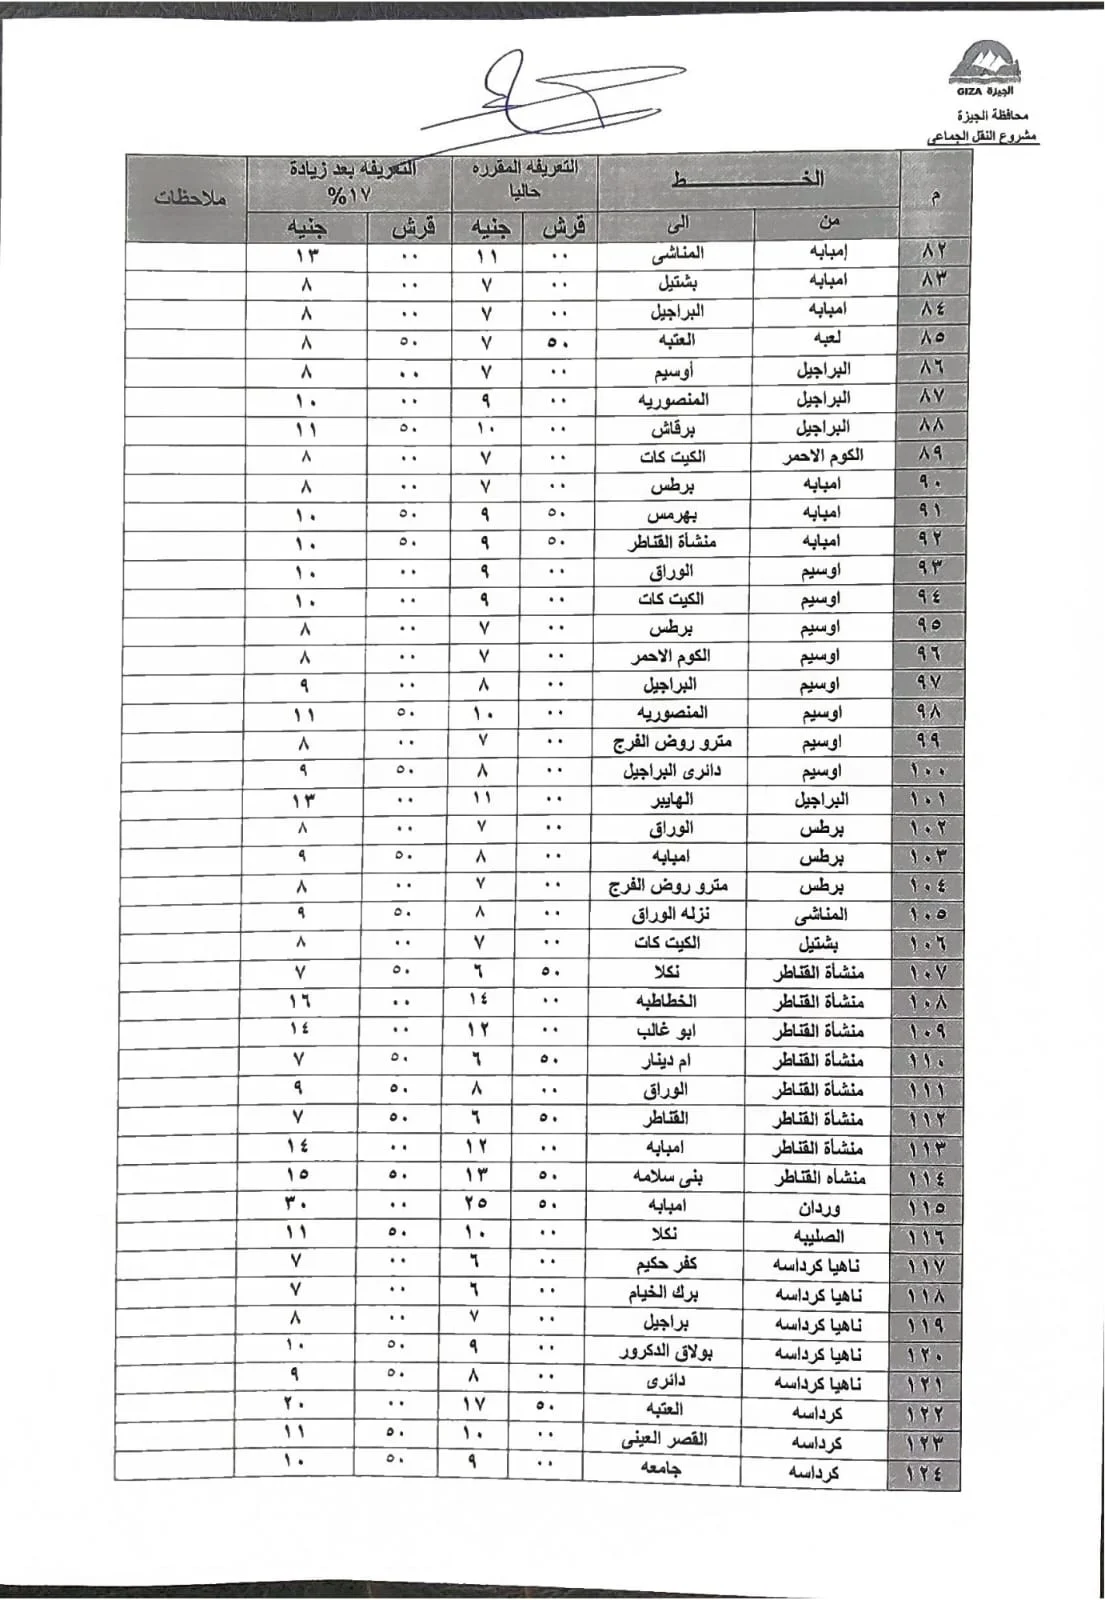 الجيزة GIZA
محافظة الجيزة
مشروع النقل الجماعى
م الخـــــــــــط التعريفه المقرره حاليا التعريفه بعد زيادة ١٧% ملاحظات
من الى قرش جنيه قرش جنيه
٨٢ إمبابه المناشى ٠٠ ١١ ٠٠ ١٣
٨٣ امبابه بشتيل ٠٠ ٧ ٠٠ ٨
٨٤ امبابه البراجيل ٠٠ ٧ ٠٠ ٨
٨٥ لعبه العتبه ٥٠ ٧ ٥٠ ٨
٨٦ البراجيل أوسيم ٠٠ ٧ ٠٠ ٨
٨٧ البراجيل المنصوريه ٠٠ ٩ ٠٠ ١٠
٨٨ البراجيل برقاش ٠٠ ١٠ ٥٠ ١١
٨٩ الكوم الاحمر الكيت كات ٠٠ ٧ ٠٠ ٨
٩٠ امبابه برطس ٠٠ ٧ ٠٠ ٨
٩١ امبابه بهرمس ٥٠ ٩ ٥٠ ١٠
٩٢ امبابه منشأة القناطر ٥٠ ٩ ٥٠ ١٠
٩٣ اوسيم الوراق ٠٠ ٩ ٠٠ ١٠
٩٤ اوسيم الكيت كات ٠٠ ٩ ٠٠ ١٠
٩٥ اوسيم برطس ٠٠ ٧ ٠٠ ٨
٩٦ اوسيم الكوم الاحمر ٠٠ ٧ ٠٠ ٨
٩٧ اوسيم البراجيل ٠٠ ٨ ٠٠ ٩
٩٨ اوسيم المنصوريه ٠٠ ١٠ ٥٠ ١١
٩٩ اوسيم مترو روض الفرج ٠٠ ٧ ٠٠ ٨
١٠٠ اوسيم دائرى البراجيل ٠٠ ٨ ٥٠ ٩
١٠١ البراجيل الهايبر ٠٠ ١١ ٠٠ ١٣
١٠٢ برطس الوراق ٠٠ ٧ ٠٠ ٨
١٠٣ برطس امبابه ٠٠ ٨ ٥٠ ٩
١٠٤ برطس مترو روض الفرج ٠٠ ٧ ٠٠ ٨
١٠٥ المناشى نزله الوراق ٠٠ ٨ ٥٠ ٩
١٠٦ بشتيل الكيت كات ٠٠ ٧ ٠٠ ٨
١٠٧ منشأة القناطر نكلا ٥٠ ٦ ٥٠ ٧
١٠٨ منشأة القناطر الخطاطبه ٠٠ ١٤ ٠٠ ١٦
١٠٩ منشأة القناطر ابو غالب ٠٠ ١٢ ٠٠ ١٤
١١٠ منشأة القناطر ام دينار ٥٠ ٦ ٥٠ ٧
١١١ منشأة القناطر الوراق ٠٠ ٨ ٥٠ ٩
١١٢ منشأة القناطر القناطر ٥٠ ٦ ٥٠ ٧
١١٣ منشأة القناطر امبابه ٠٠ ١٢ ٠٠ ١٤
١١٤ منشأه القناطر بنى سلامه ٥٠ ١٣ ٥٠ ١٥
١١٥ وردان امبابه ٥٠ ٢٥ ٠٠ ٣٠
١١٦ الصليبه نكلا ٠٠ ١٠ ٥٠ ١١
١١٧ ناهيا كرداسه كفر حكيم ٠٠ ٦ ٠٠ ٧
١١٨ ناهيا كرداسه برك الخيام ٠٠ ٦ ٠٠ ٧
١١٩ ناهيا كرداسه براجيل ٠٠ ٧ ٠٠ ٨
١٢٠ ناهيا كرداسه بولاق الدكرور ٠٠ ٩ ٥٠ ١٠
١٢١ ناهيا كرداسه دائرى ٠٠ ٨ ٥٠ ٩
١٢٢ كرداسه العتبه ٥٠ ١٧ ٠٠ ٢٠
١٢٣ كرداسه القصر العينى ٠٠ ١٠ ٥٠ ١١
١٢٤ كرداسه جامعه ٠٠ ٩ ٥٠ ١٠